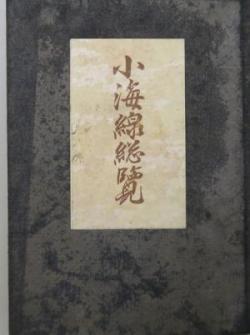 小海線総覽